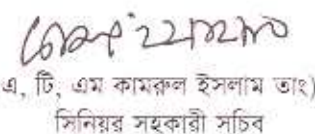 এ, টি, এম কামরুল ইসলাম তাং)
সিনিয়র সহকারী সচিব